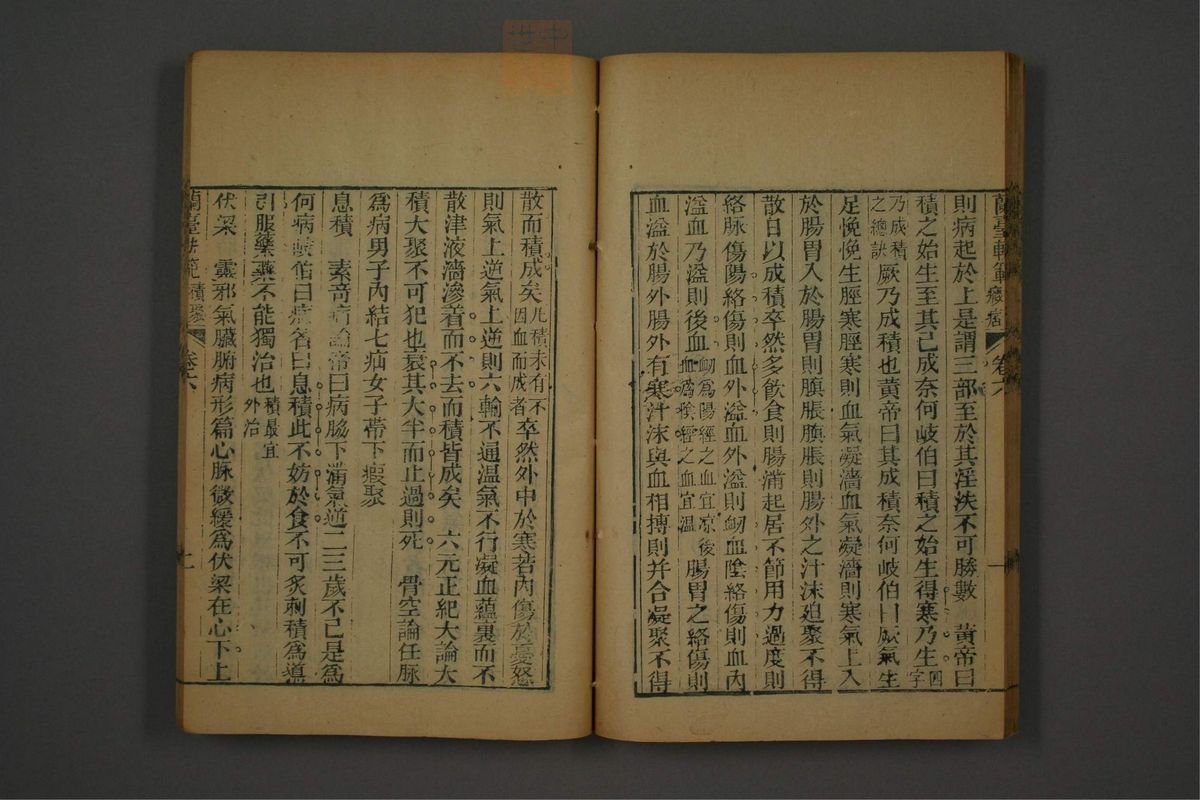 則病起於上是謂三部至於其淫泆不可勝數　黄帝曰
積之始生至其已成奈何岐伯曰積之始生得寒乃生四字
乃成積之總訣厥乃成積也黄帝曰其成積奈何岐伯曰厥氣生
足悗悗生脛寒脛寒則血氣凝濇血氣凝濇則寒氣上入
於腸胃入於腸胃則䐜脹䐜脹則腸外之汁沫迫聚不得
散日以成積卒然多飲食則腸滿起居不節用力過度則
絡脉傷陽絡傷則血外溢血外溢則衂血陰絡傷則血内
溢血乃溢則後血衂爲陽經之血宜凉後血爲陰經之血宜温腸胃之絡傷則
血溢於腸外腸外有寒汁沫與血相摶則并合凝聚不得
蘭臺軌範
卷六
散而積成矣凡積未有不因血而成者卒然外中於寒若内傷於憂怒
則氣上逆氣上逆則六輸不通温氣不行凝血藴裏而不
散津液濇滲着而不去而積皆成矣　六元正紀大論大
積大聚不可犯也衰其大半而止過則死　骨空論任脉
爲病男子内結七疝女子帶下瘕聚
息積　素竒病論帝曰病脇下滿氣逆二三歲不已是爲
何病岐伯曰病名曰息積此不妨於食不可炙刺積爲導
引服藥藥不能獨治也積最宜外治
伏梁　靈邪氣臟腑病形篇心脉微緩爲伏梁在心下上
蘭臺軌範
積聚
卷六